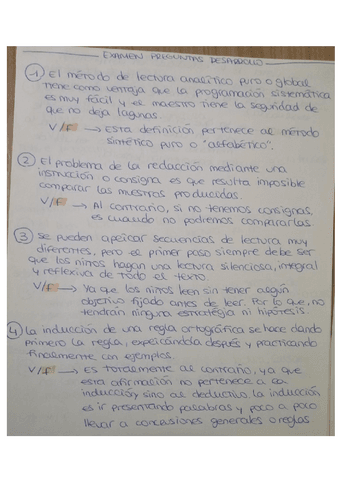 EXAMEN PREGUNTAS DESARROLLO
1 El método de lectura analítico puro o global
tiene como ventaja que la programación sistemática
es muy fácil y el maestro tiene la seguridad de
que no deja lagunas.
V/F → Esta definición pertenece al método
sintético puro o "alfabético".
2 El problema de la redacción mediante una
instrucción o consigna es que resulta imposible
comparar las muestras producidas.
V/F → Al contrario, si no tenemos consignas,
es cuando no podremos compararlas.
3 Se pueden aplicar secuencias de lectura muy
diferentes, pero el primer paso siempre debe ser
que los niños hagan una lectura silenciosa, integral
y reflexiva de todo el texto
V/F → Ya que los niños leen sin tener algún
objetivo fijado antes de leer. Por lo que, no
tendrán ninguna estrategia ni hipótesis.
4 La inducción de una regla ortográfica se hace dando
primero la regla, explicándola después y practicando
finalmente con ejemplos.
V/F → Es totalmente al contrario, ya que
esta afirmación no pertenece a la
inducción, sino al deductivo, la inducción
es ir presentando palabras y poco a poco
llevar a conclusiones generales o reglas